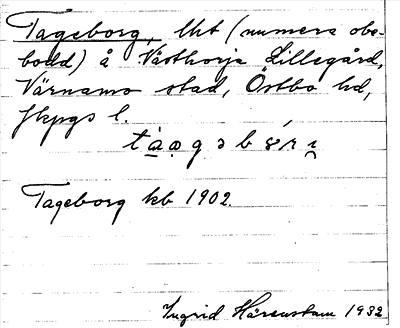 Tageborg, lht (numera obe-
bodd) å Västhorja Lillegård,
Värnamo stad, Östbo hd,
Jkpgs l.
Tageborg kb 1902.
Ingrid Härenstam 1932